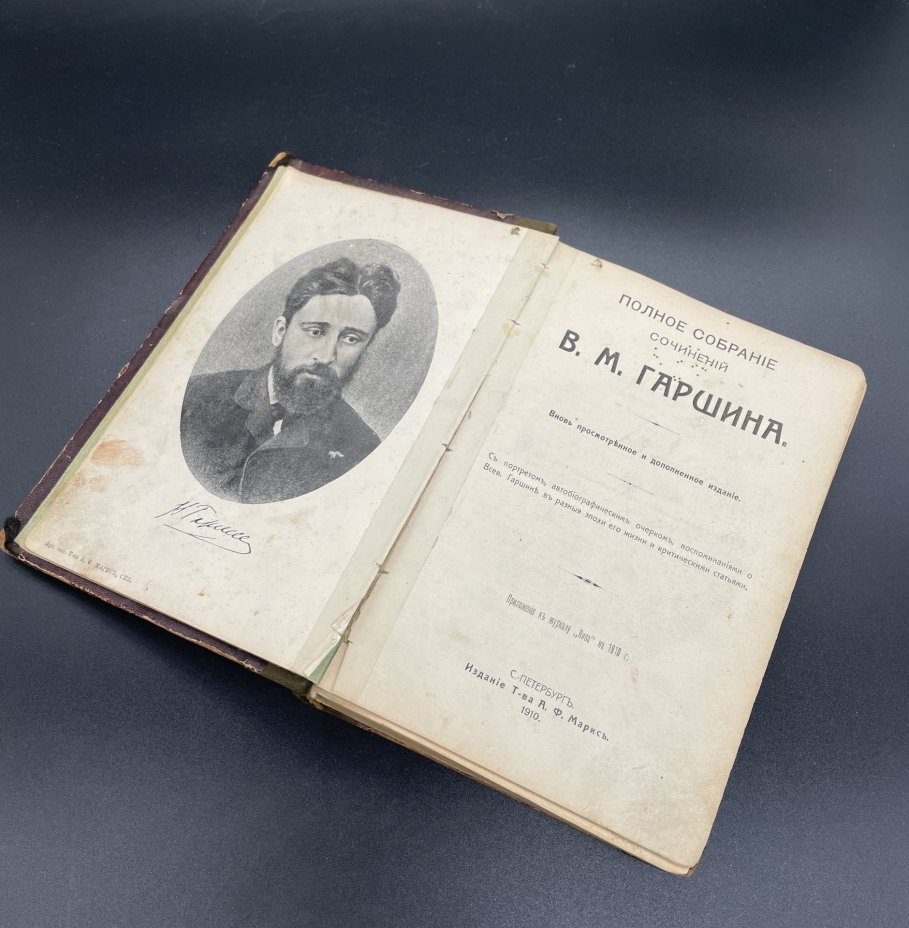 Арт. зав. Т-ва А. Ф. МАРКСЪ, СПБ.
ПОЛНОЕ СОБРАНІЕ
СОЧИНЕНІЙ
В. М. ГАРШИНА.
Вновь просмотрѣнное и дополненное изданіе.
Съ портретомъ, автобіографическимъ очеркомъ, воспоминаніями о
Всев. Гаршинѣ въ разныя эпохи его жизни и критическими статьями.
Приложеніе къ журналу „Нива“ на 1910 г.
С.-ПЕТЕРБУРГЪ.
Изданіе Т-ва А. Ф. Марксъ.
1910.